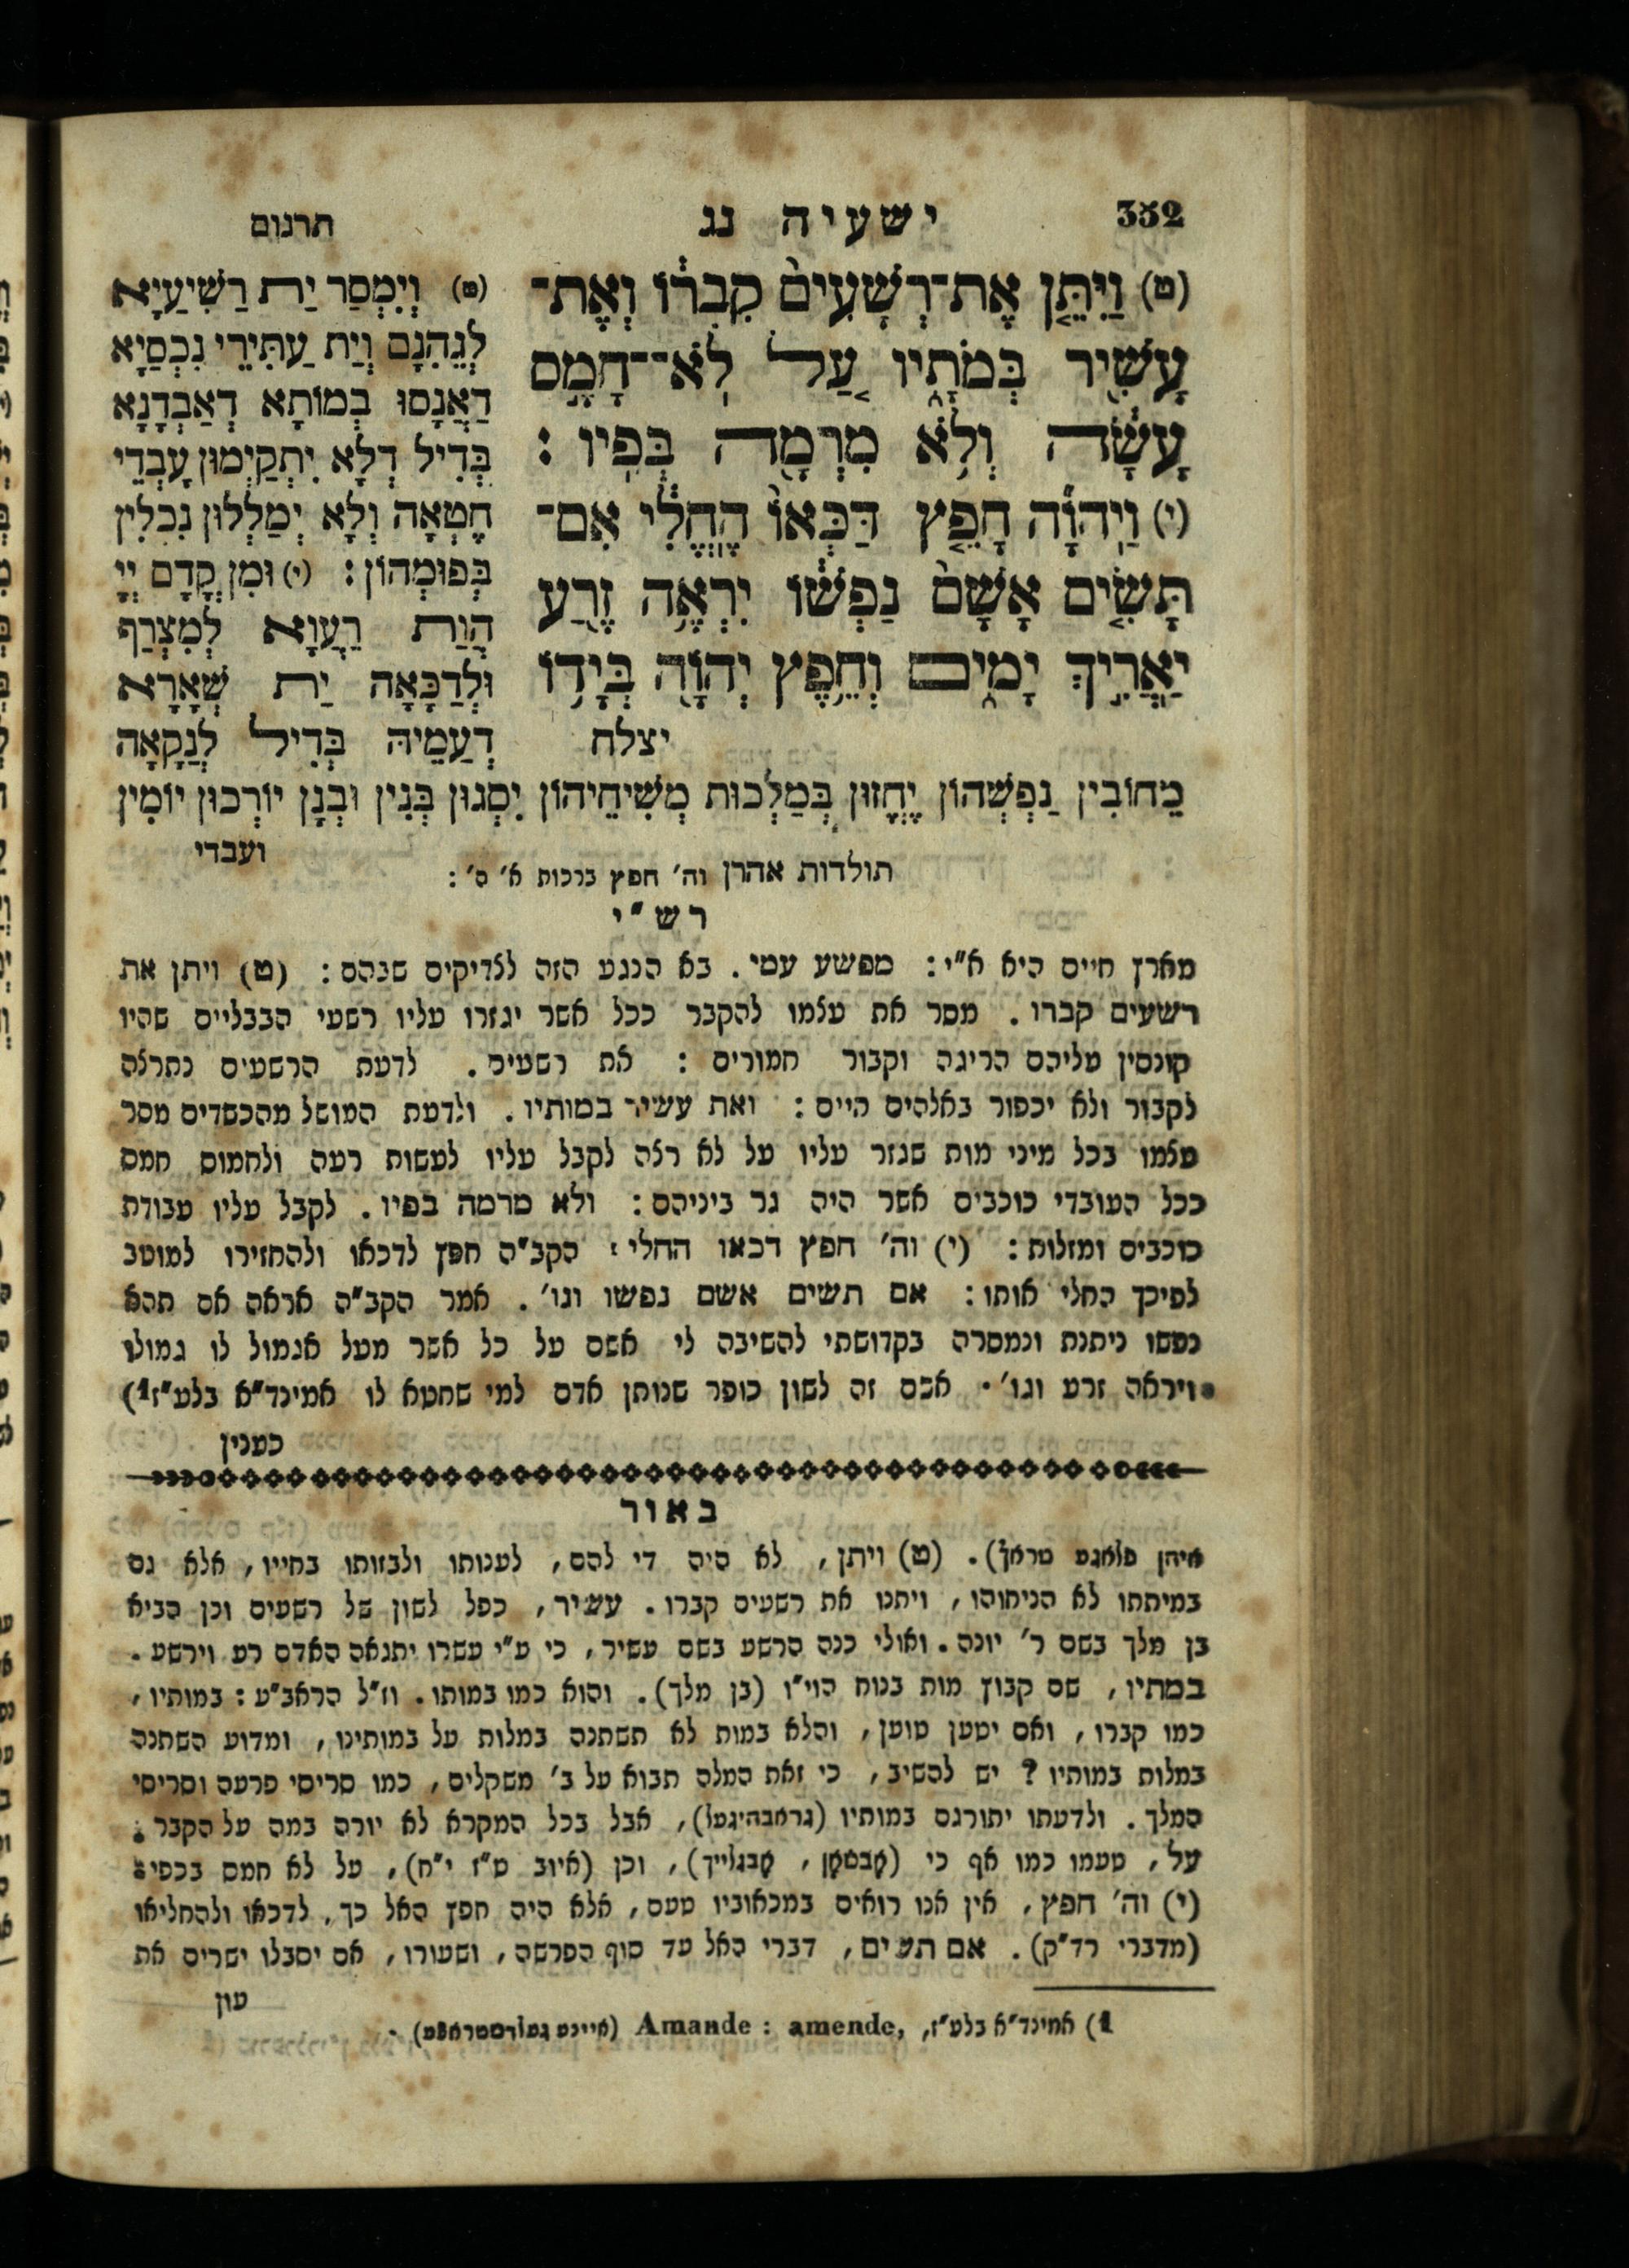 352
ישעיה נג
תרגום
(ט) וַיִּתֵּ֤ן אֶת־רְשָׁעִים֙ קִבְר֔וֹ וְאֶת־
עָשִׁ֖יר בְּמֹתָ֑יו עַ֚ל לֹא־־חָמָ֣ס
עָשָׂ֔ה וְלֹ֥א מִרְמָ֖ה בְּפִֽיו :
(י) וַֽיהוָ֞ה חָפֵ֤ץ דַּכְּאוֹ֙ הֶֽחֱלִ֔י אִם־
תָּשִׂ֤ים אָשָׁם֙ נַפְשׁ֔וֹ יִרְאֶ֥ה זֶ֖רַע
יַאֲרִ֣יךְ יָמִ֑ים וְחֵ֥פֶץ יְהוָ֖ה בְּיָד֥וֹ
יצלח
(ט) וְיִמְסַר יַת רַשִׁיעַיָא
לְגֵהִנָם וְיַת עַתִּירֵי נִכְסַיָא
דַאֲנָסוּ בְּמוֹתָא דְאַבְדָנָא
בְּדִיל דְלָא יִתְקַיְמוּן עָבְדֵי
חֶטְאָה וְלָא יְמַלְלוּן נִכְלִין
בְּפוּמְהוֹן : (י) וּמִן קֳדָם יְיָ
הֲוַת רַעֲוָא לְמִצְרַף
וּלְדַכָּאָה יַת שְׁאָרָא
דְעַמֵיהּ בְּדִיל לְנַקָאָה
מֵחוֹבִין נַפְשְׁהוֹן יֶחֱזוּן בְּמַלְכוּת מְשִׁיחֵיהוֹן יִסְגוּן בְּנִין וּבְנָן יוֹרְכוּן יוֹמִין
ועבדי
תולדות אהרן וה׳ חפץ ברכות א׳ ס׳ :
רש״י
מארץ חיים היא א״י : מפשע עמי . בא הנגע הזה לצדיקים שבהם : (ט) ויתן את
רשעים קברו . מסר את עצמו להקבר ככל אשר יגזרו עליו רשעי הבבליים שהיו
קונסין עליהם הריגה וקבור חמורים : את רשעים . לדעת הרשעים נתרצה
לקבור ולא יכפור באלהים חיים : ואת עשיר במותיו . ולדעת המושל מהכשדים מסר
עצמו בכל מיני מות שגזר עליו על לא רצה לקבל עליו לעשות רעה ולחמום חמס
ככל העובדי כוכבים אשר היה גר ביניהם : ולא מרמה בפיו . לקבל עליו עבודת
כוכבים ומזלות : (י) וה׳ חפץ דכאו החלי : הקב״ה חפץ לדכאו ולהחזירו למוטב
לפיכך החלי אותו : אם תשים אשם נפשו וגו׳ . אמר הקב״ה אראה אם תהא
נפשו ניתנת ונמסרה בקדושתי להשיבה לי אשם על כל אשר מעל אגמול לו גמולו
ויראה זרע וגו׳ . אשם זה לשון כופר שנותן אדם למי שחטא לו אמינד״א בלע״ז1)
כענין
באור
איהן פלאגע טראף) . (ט) ויתן , לא היה די להם , לענותו ולבזותו בחייו , אלא גם
במיתתו לא הניחוהו , ויתנו את רשעים קברו . עשיר , כפל לשון של רשעים וכן הביא
בן מלך בשם ר׳ יונה . ואולי כנה הרשע בשם עשיר , כי ע״י עשרו יתגאה האדם רע וירשע .
במתיו , שם קבוץ מות בנוח הוי״ו (בן מלך) . והוא כמו במותו . וז״ל הראב״ע : במותיו ,
כמו קברו , ואם יטען טוען , והלא במות לא תשתנה במלות על במותינו , ומדוע השתנה
במלות במותיו ? יש להשיב , כי זאת המלה תבוא על ב׳ משקלים , כמו סריסי פרעה וסריסי
המלך . ולדעתו יתורגם במותיו (גראבהיגעל) , אבל בכל המקרא לא יורה במה על הקבר :
על , טעמו כמו אף כי (אָבשאָן , אָבגלייך) , וכן (איוב ט״ז י״ח) , על לא חמס בכפי :
(י) וה׳ חפץ , אין אנו רואים במכאוביו טעם , אלא היה חפץ האל כך , לדכאו ולהחליאו
(מדברי רד״ק) . אם תשים , דברי האל עד סוף הפרשה , ושעורו , אם יסבלו ישרים את
עון
1) אמינד״א בלע״ז, Amande : amende, (איינע געלדסטראפע) .